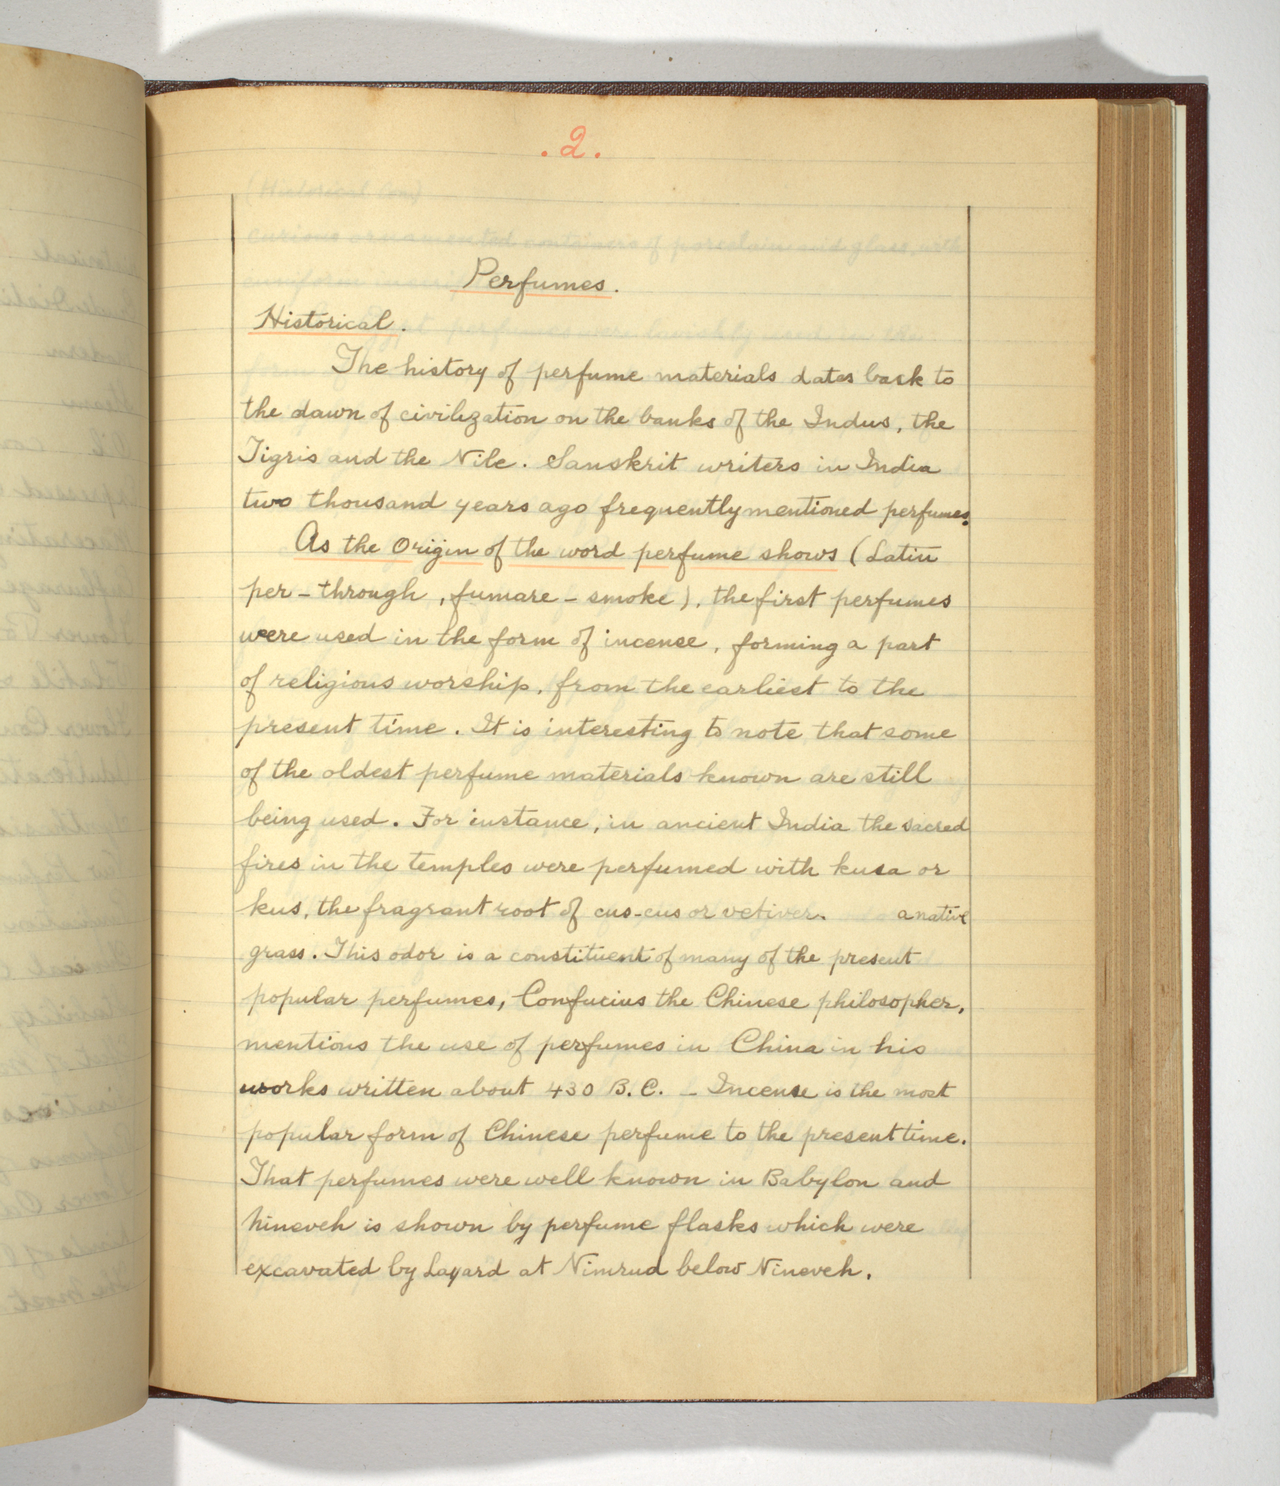 .2.
Perfumes.
Historical.
The history of perfume materials dates back to
the dawn of civilization on the banks of the Indus, the
Tigris and the Nile. Sanskrit writers in India
two thousand years ago frequently mentioned perfumes.
As the Origin of the word perfume shows (Latin
per - through, fumare - smoke), the first perfumes
were used in the form of incense, forming a part
of religious worship, from the earliest to the
present time. It is interesting to note that some
of the oldest perfume materials known are still
being used. For instance, in ancient India the sacred
fires in the temples were perfumed with kusa or
kus, the fragrant root of cus-cus or vetiver. a native
grass. This odor is a constituent of many of the present
popular perfumes, Confucius the Chinese philosopher,
mentions the use of perfumes in China in his
works written about 430 B.C. - Incense is the most
popular form of Chinese perfume to the present time.
That perfumes were well known in Babylon and
Nineveh is shown by perfume flasks which were
excavated by Layard at Nimrud below Nineveh.